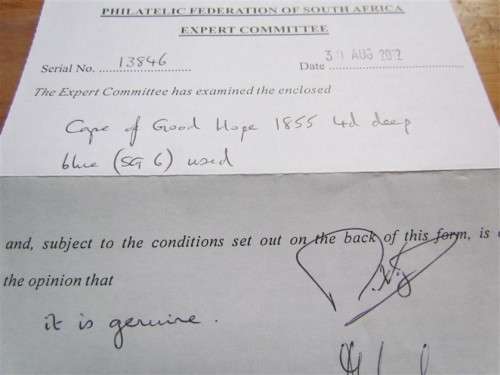 PHILATELIC FEDERATION OF SOUTH AFRICA
EXPERT COMMITTEE
Serial No. 13846 Date 30 AUG 2012
The Expert Committee has examined the enclosed
Cape of Good Hope 1855 4d deep
blue (SG 6) used
and, subject to the conditions set out on the back of this form, is
the opinion that
it is genuine.